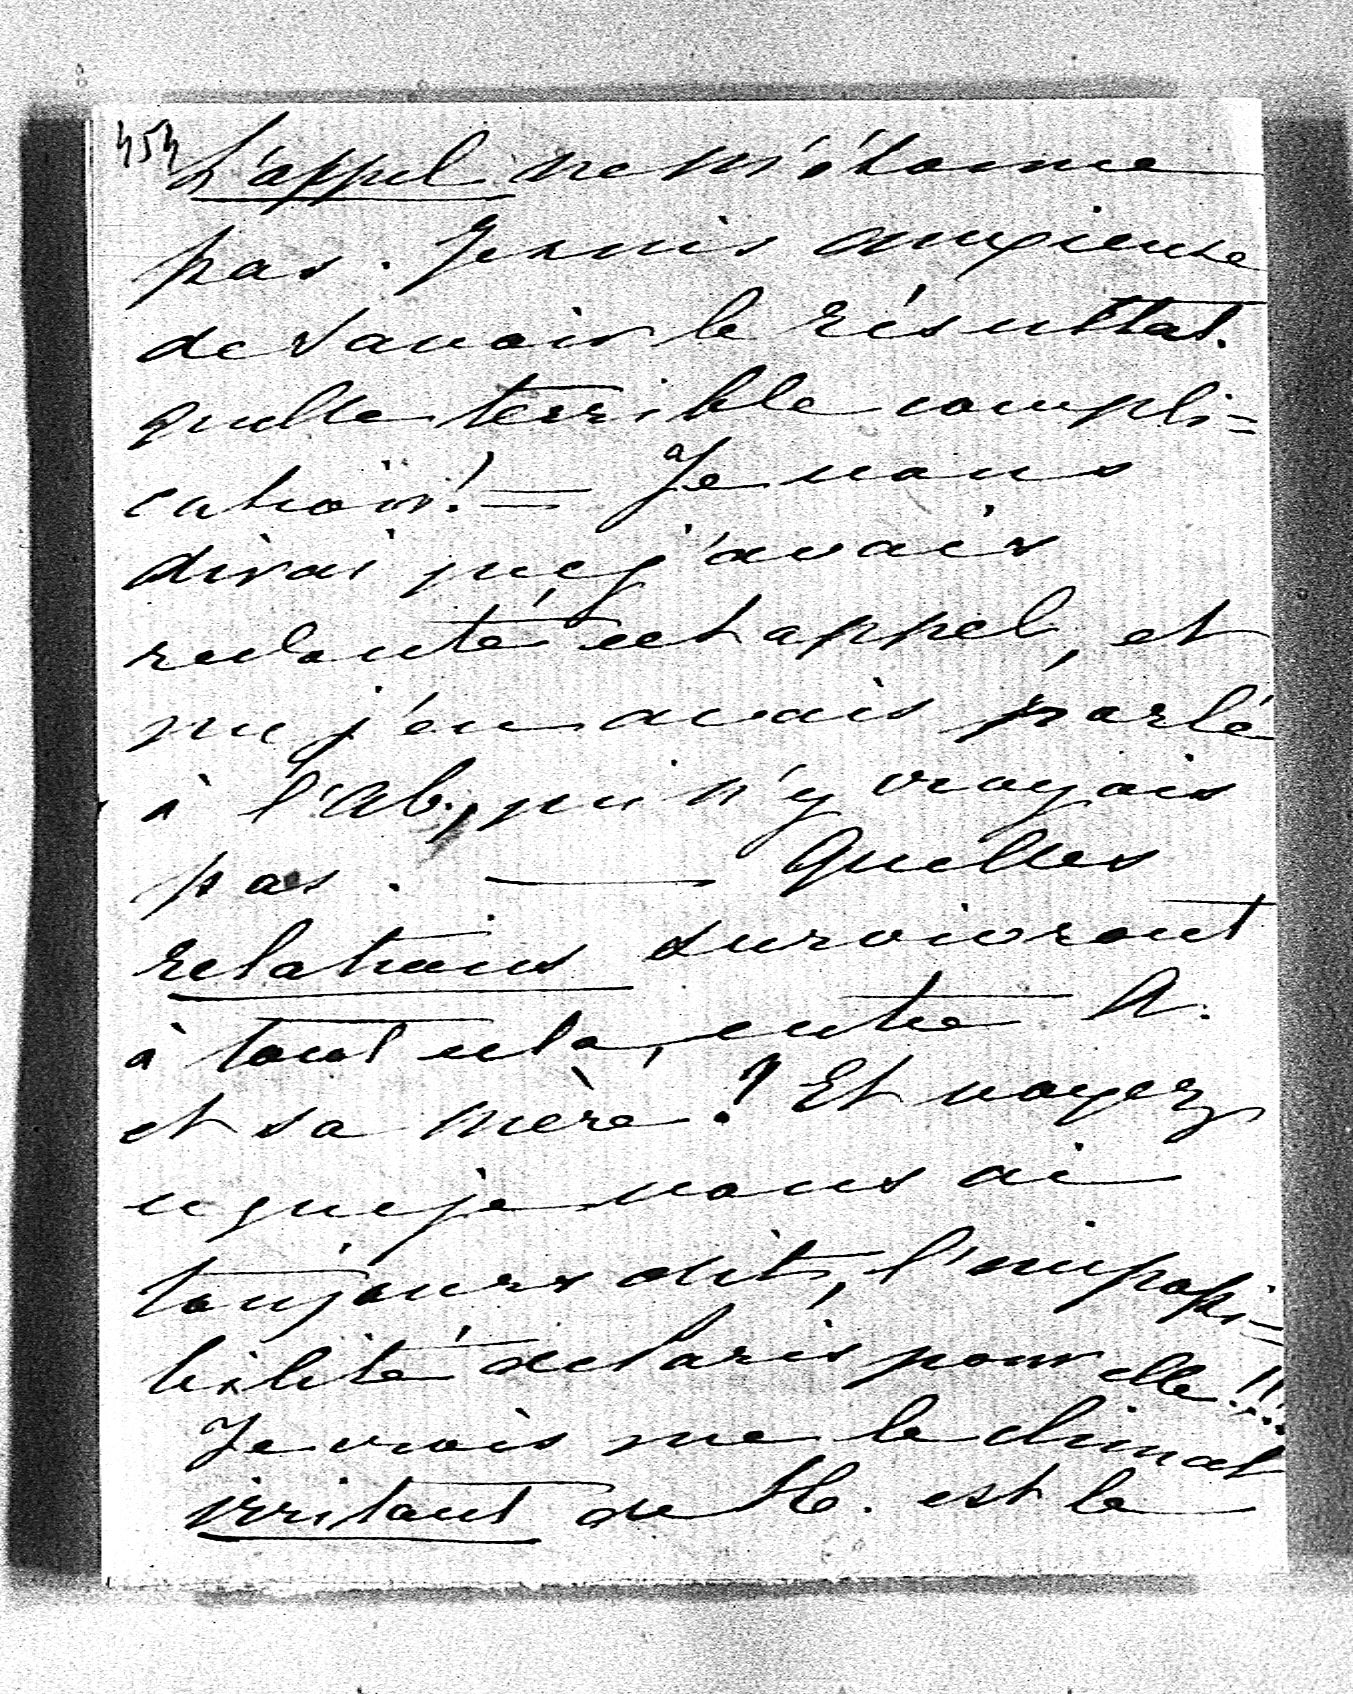 454
L'appel ne m'étonne
pas. Je suis anxieuse
de savoir le résultat.
quelle terrible compli=
cation! — Je vous
dirai que j'avais
redouté cet appel, et
que j'en avais parlé
à l'Ab., qui n'y croyais
pas. — Quelles
relations survivront
à tout cela, entre A.
et sa mère? Et voyez
ce que je vous ai
toujours dit, l'impossi=
bilité de Paris pour elle!!!
Je crois que le climat
irritant de H. est le